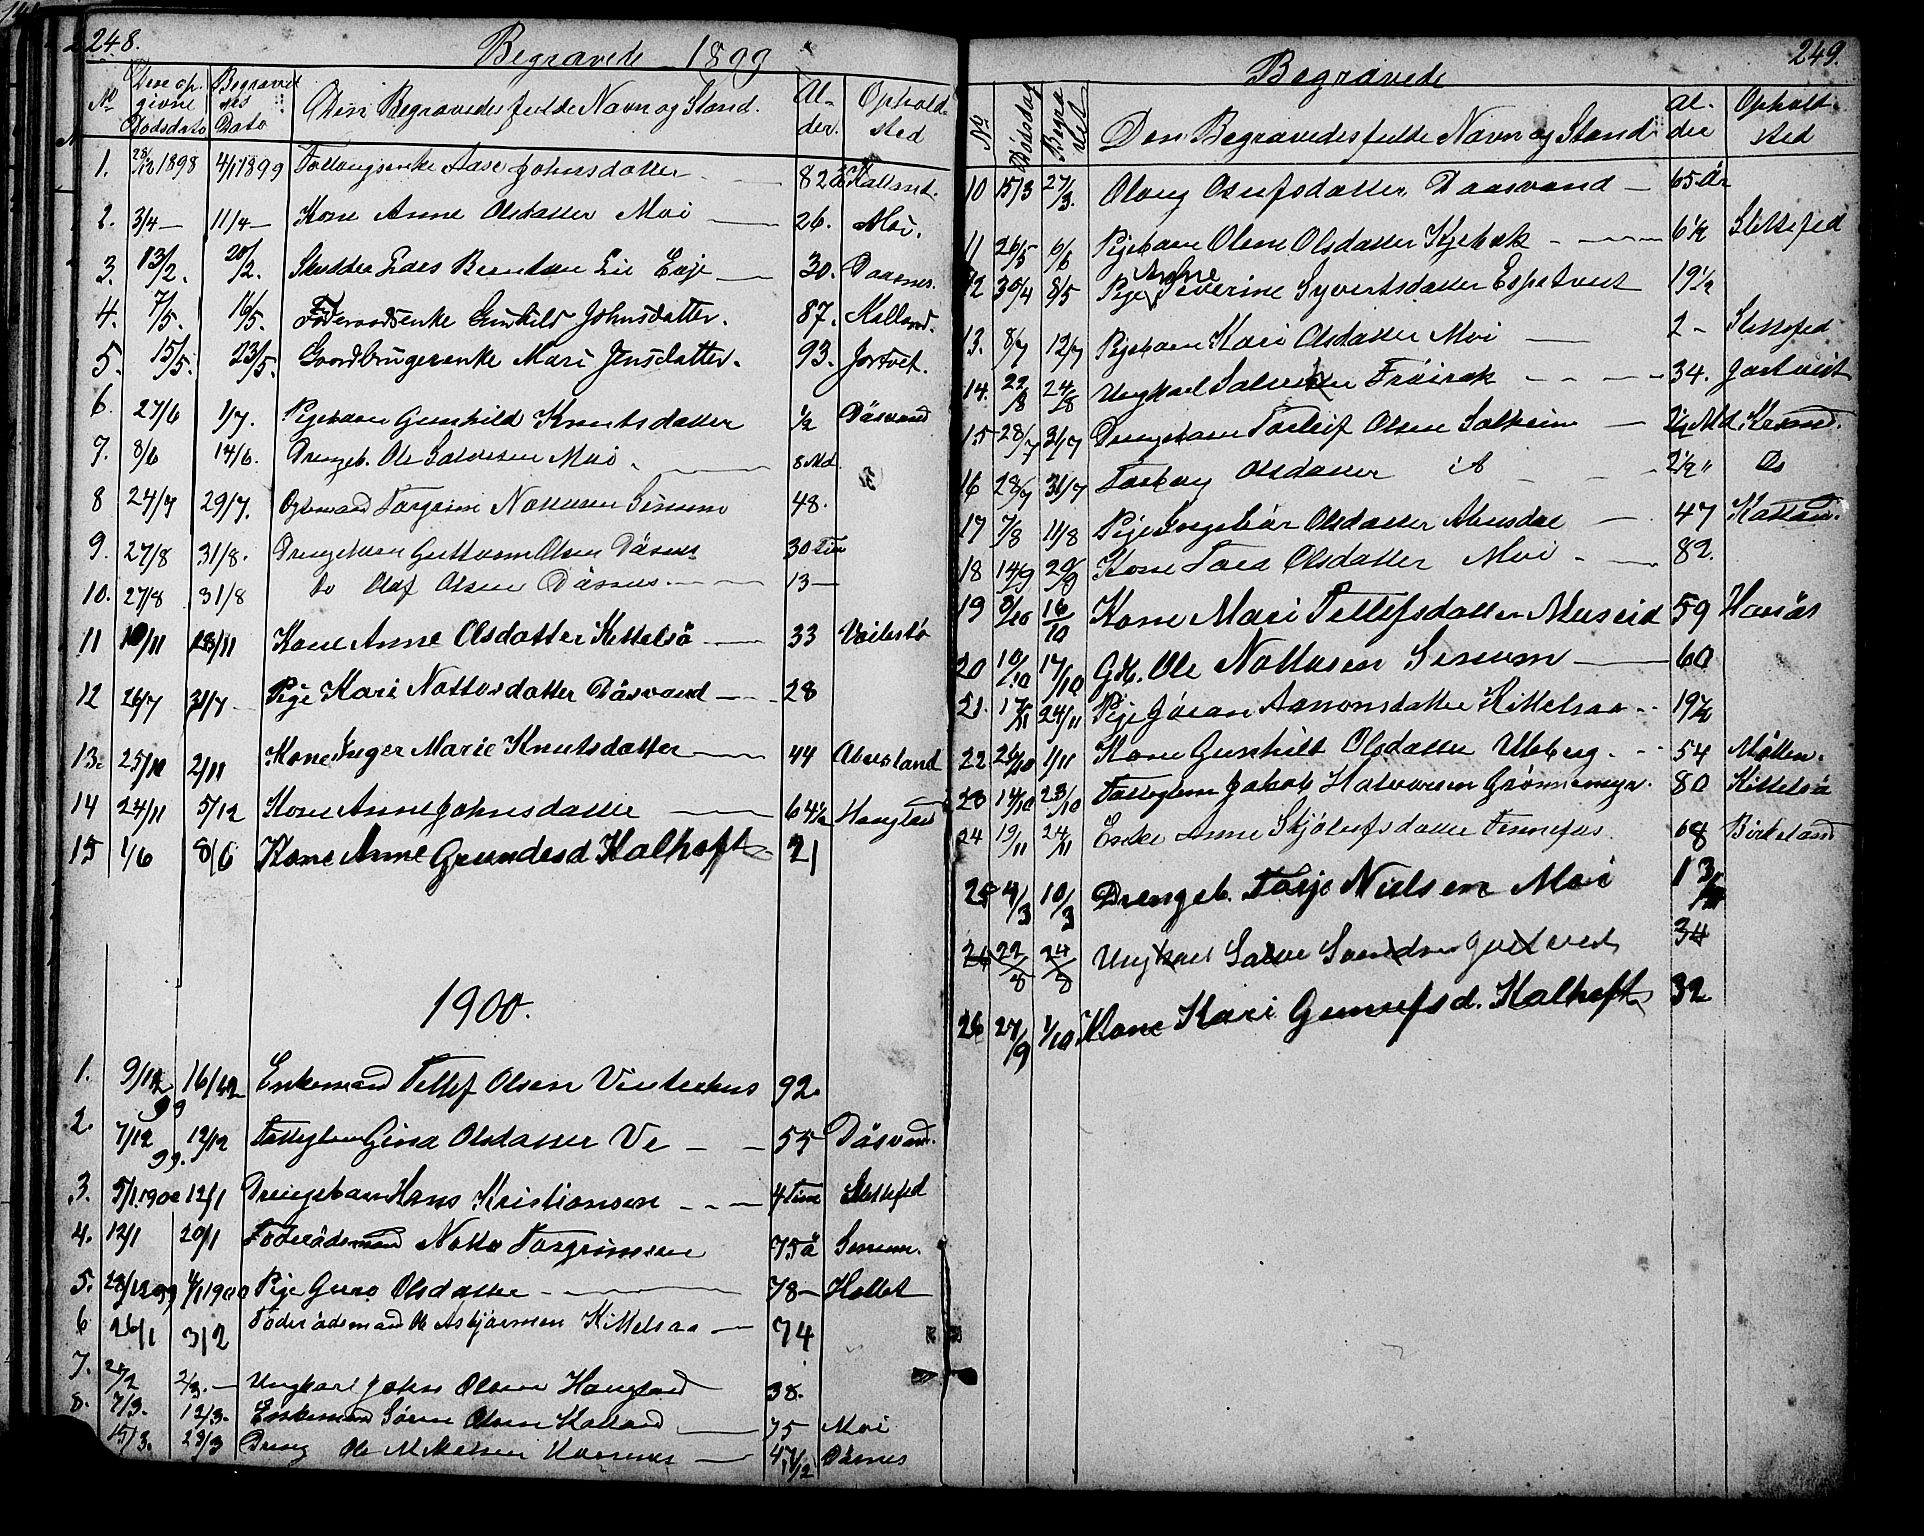 248.
Begravede 1899
No Den opgivne Dødsdato Begravelses Dato Den Begravedes fulde Navn og Stand. Alder. Opholdsted
1. 28/12 1898 4/1 1899 Aase Johnsdatter 82 Kalland.
2. 3/4 — 11/4 — Kone Anne Olsdatter Moi 26. Moi.
3. 13/2. 20/2. Lars Berntsen Lie Evje 30. Daasnes.
4. 7/5. 16/5. Føderaadsenke Gunhild Johnsdatter. 87. Kalland.
5. 15/5. 23/5. Gaardbrugerenke Mari Jensdatter. 93. Jortvet.
6. 27/6 1/7. Pigebarn Gunhild Knutsdatter 1/2 Dåsvand
7. 8/6 14/6. Drengeb. Ole Salvesen Moi. 8 Md.
8 24/7 29/7. Torgrim Nottosen Senum 48.
9. 27/8 31/8. Drengebarn Guttorm Olsen Dåsnes 30 Tim
10. 27/8 31/8 Do Olaf Olsen Dåsnes 13 —
11 10/11 18/11 Kone Anne Olsdatter Kittelså 33 Veilestø
12 26/7 31/7 — Pige Kari Nottosdatter Dåsvand 28
13. 25/10 2/11 Kone Inger Marie Knutsdatter 44 Abusland
14 24/11 5/12 Kone Anne Johnsdatter 64 1/2 Haugland
15 1/6 8/6 Kone Anne Gundesd Kalhoft 21
1900.
1. 9/12 99 16/12 Enkemand Tellef Olsen Vinterhus 92.
2. 7/12 99. 12/12 Fattiglem Gina Olsdatter Ve 55 Dåsvand.
3. 5/1 1900 12/1 Drengebarn Hans Kristiansen 4 Time Slettefed
4. 12/1 20/1 Føderådsmand Notto Torgrimsen 75 å Senum.
5. 28/12 99 4/1 1900 Pige Guro Olsdatter 78 — Hollet
6 26/1 3/2 Føderådsmand Ole Asbjørnsen Kittelsaa 74
7. 2/3. — Ungkarl John Olsen Haugland 38.
8. 7/3. 12/3. Enkemand Søren Olsen Kalland 75 Moi
15/3. 23/3 Dreng Ole Mikkelsen 4 Dåsnes
249.
Begravede
No Dødsdag Begravet Den Begravedes fulde Navn og Stand Alder Opholdsted
10 15/3 27/3. Olaug Osufsdatter Daasvand — 65 År
11 26/5 6/6 Pigebarn Olene Olsdatter Kjebæk 6 1/2 Slettefed
12 30/4 8/5 Pige Anne Severine Syvertsdatter Espetveit 19 1/2
13. 8/7 12/7 Pigebarn Kari Olsdatter Moi 2 — Slettefed
14. 22/8 24/8 Ungkarl Salve Frøirak 34. Jortveit
15 28/7 31/7 Drengebarn Torleif Olsen Solheim — 2 1/2 Md. Krsand.
16 28/7 31/7 Torborg Olsdatter 2 1/2 " Do
17 7/8 11/8 Pige Ingebår Olsdatter 47 Kalland.
18 14/9 20/9 Kone Tore Olsdatter Moi 82.
19 8/10 16/10 Kone Mari Tellefsdatter Museid 59 Honås
20 10/10 17/10 Gbr. Ole Nottosen Senum 60
21. 17/11 24/11 Pige Jøran Aanonsdatter Kittelsaa 19 1/2
22 26/10 1/11 Kone Gunhilt Olsdatter Uleberg. 54 Møllen.
23 14/10 23/10 Fattiglem Jakob Halvorsen Grønnemyr. 80 Kittelså
24 19/11 24/11 Enke Anne Skjølufsdatter Finnefos 68 Birkeland
25 4/3 10/3 Drengeb. Torje Nielsen Moi 13
26 22/8 24/8 Ungkarl Salve Jortveit 34
26 27/9 1/10 Kone Kari Gunufsd. Kalhoft 32